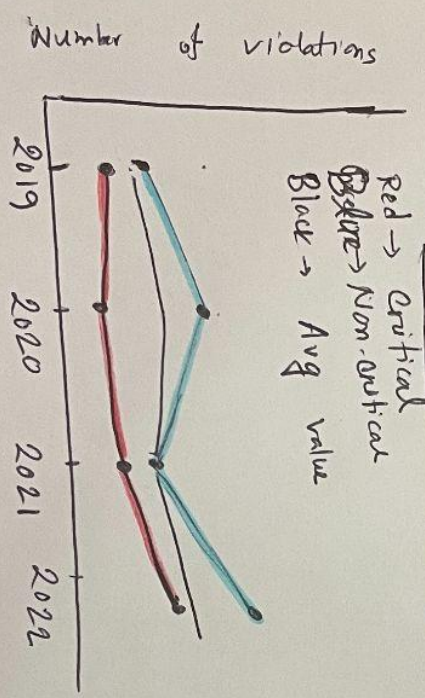 Number of violations
Red → Critical
Blue → Non-critical
Black → Avg value
2019
2020
2021
2022